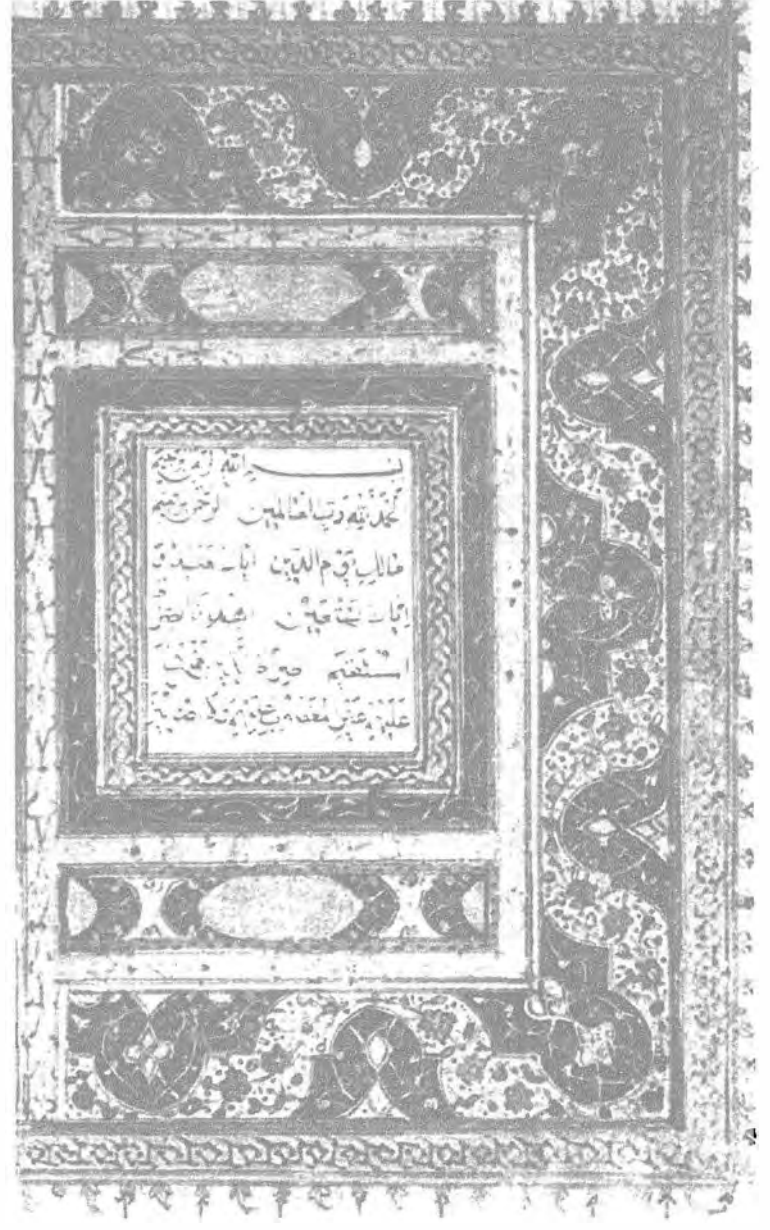 بسم الله الرحمن الرحيم
الحمد لله رب العالمين الرحمن الرحيم
مالك يوم الدين اياك نعبد و
اياك نستعين اهدنا الصر
المستقيم صراط الذين انعمت
عليهم غير المغضوب عليهم ولا الضالين